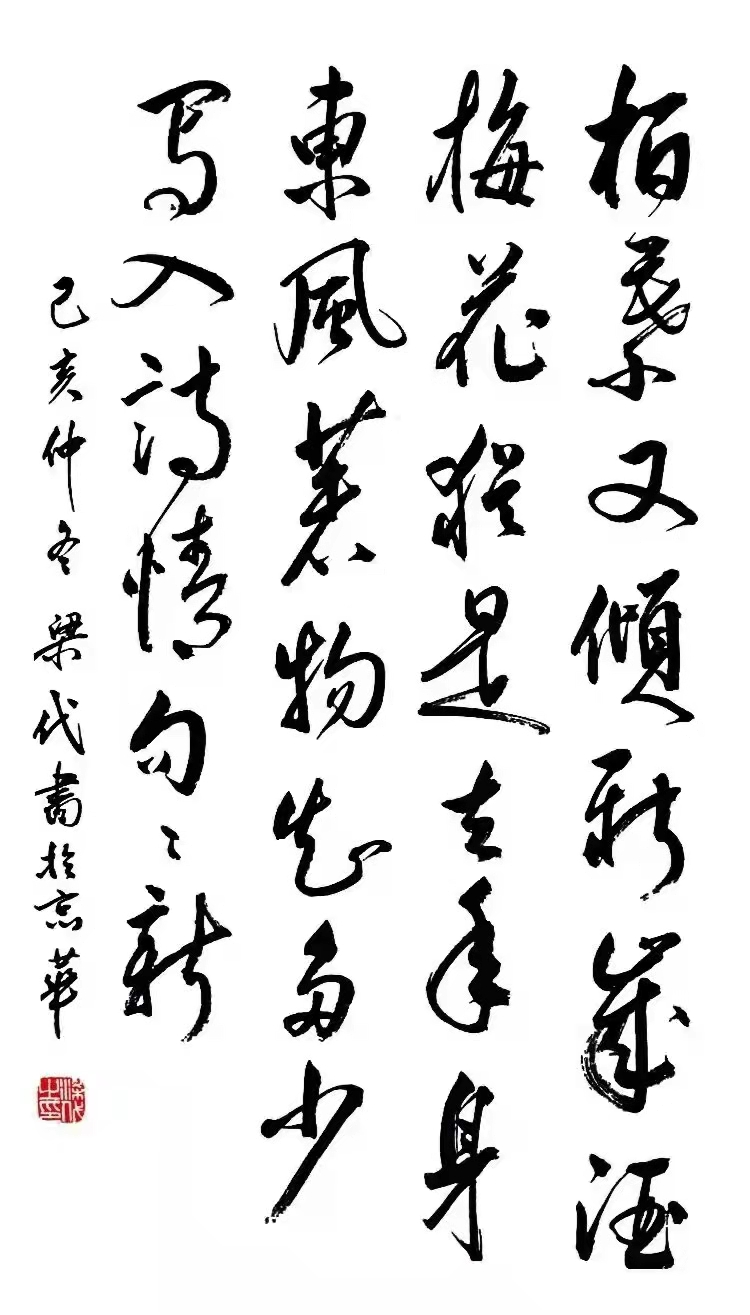 柏葉又傾新歲酒
梅花猶是去年身
東風著物知多少
写入詩情句〻新
己亥仲冬 梁代書於京華
梁代之印